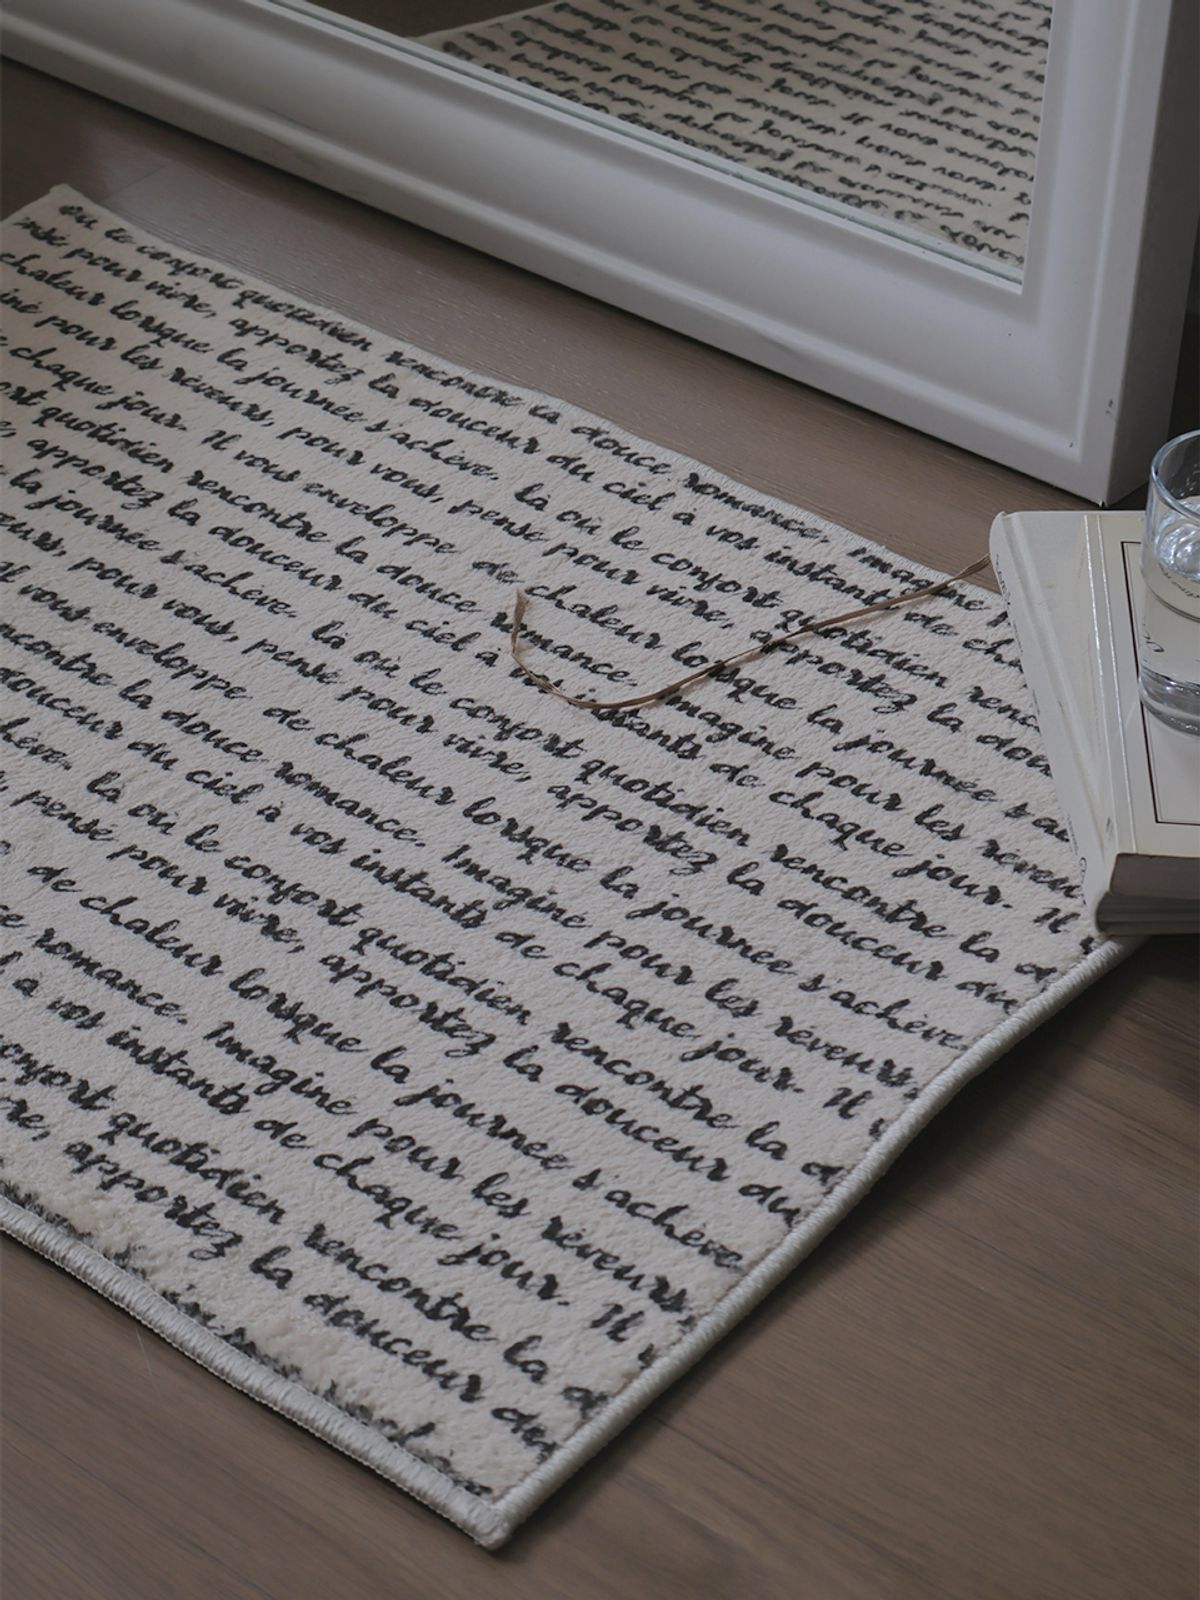 où le confort quotidien rencontre la douce romance. Imaginé p
ensé pour vivre, apportez la douceur du ciel à vos instants de cha
chaleur lorsque la journée s'achève. là où le confort quotidien renc
iné pour les rêveurs, pour vous, pensé pour vivre, apportez la dou
e chaque jour. Il vous enveloppe de chaleur lorsque la journée s'ac
ort quotidien rencontre la douce romance. Imaginé pour les rêveu
e, apportez la douceur du ciel à vos instants de chaque jour. Il v
la journée s'achève. là où le confort quotidien rencontre la d
eurs, pour vous, pensé pour vivre, apportez la douceur du
Il vous enveloppe de chaleur lorsque la journée s'achève.
ncontre la douce romance. Imaginé pour les rêveurs,
douceur du ciel à vos instants de chaque jour. Il v
hève. là où le confort quotidien rencontre la d
, pensé pour vivre, apportez la douceur du
de chaleur lorsque la journée s'achève.
ce romance. Imaginé pour les rêveurs,
l à vos instants de chaque jour. Il v
onfort quotidien rencontre la d
re, apportez la douceur du